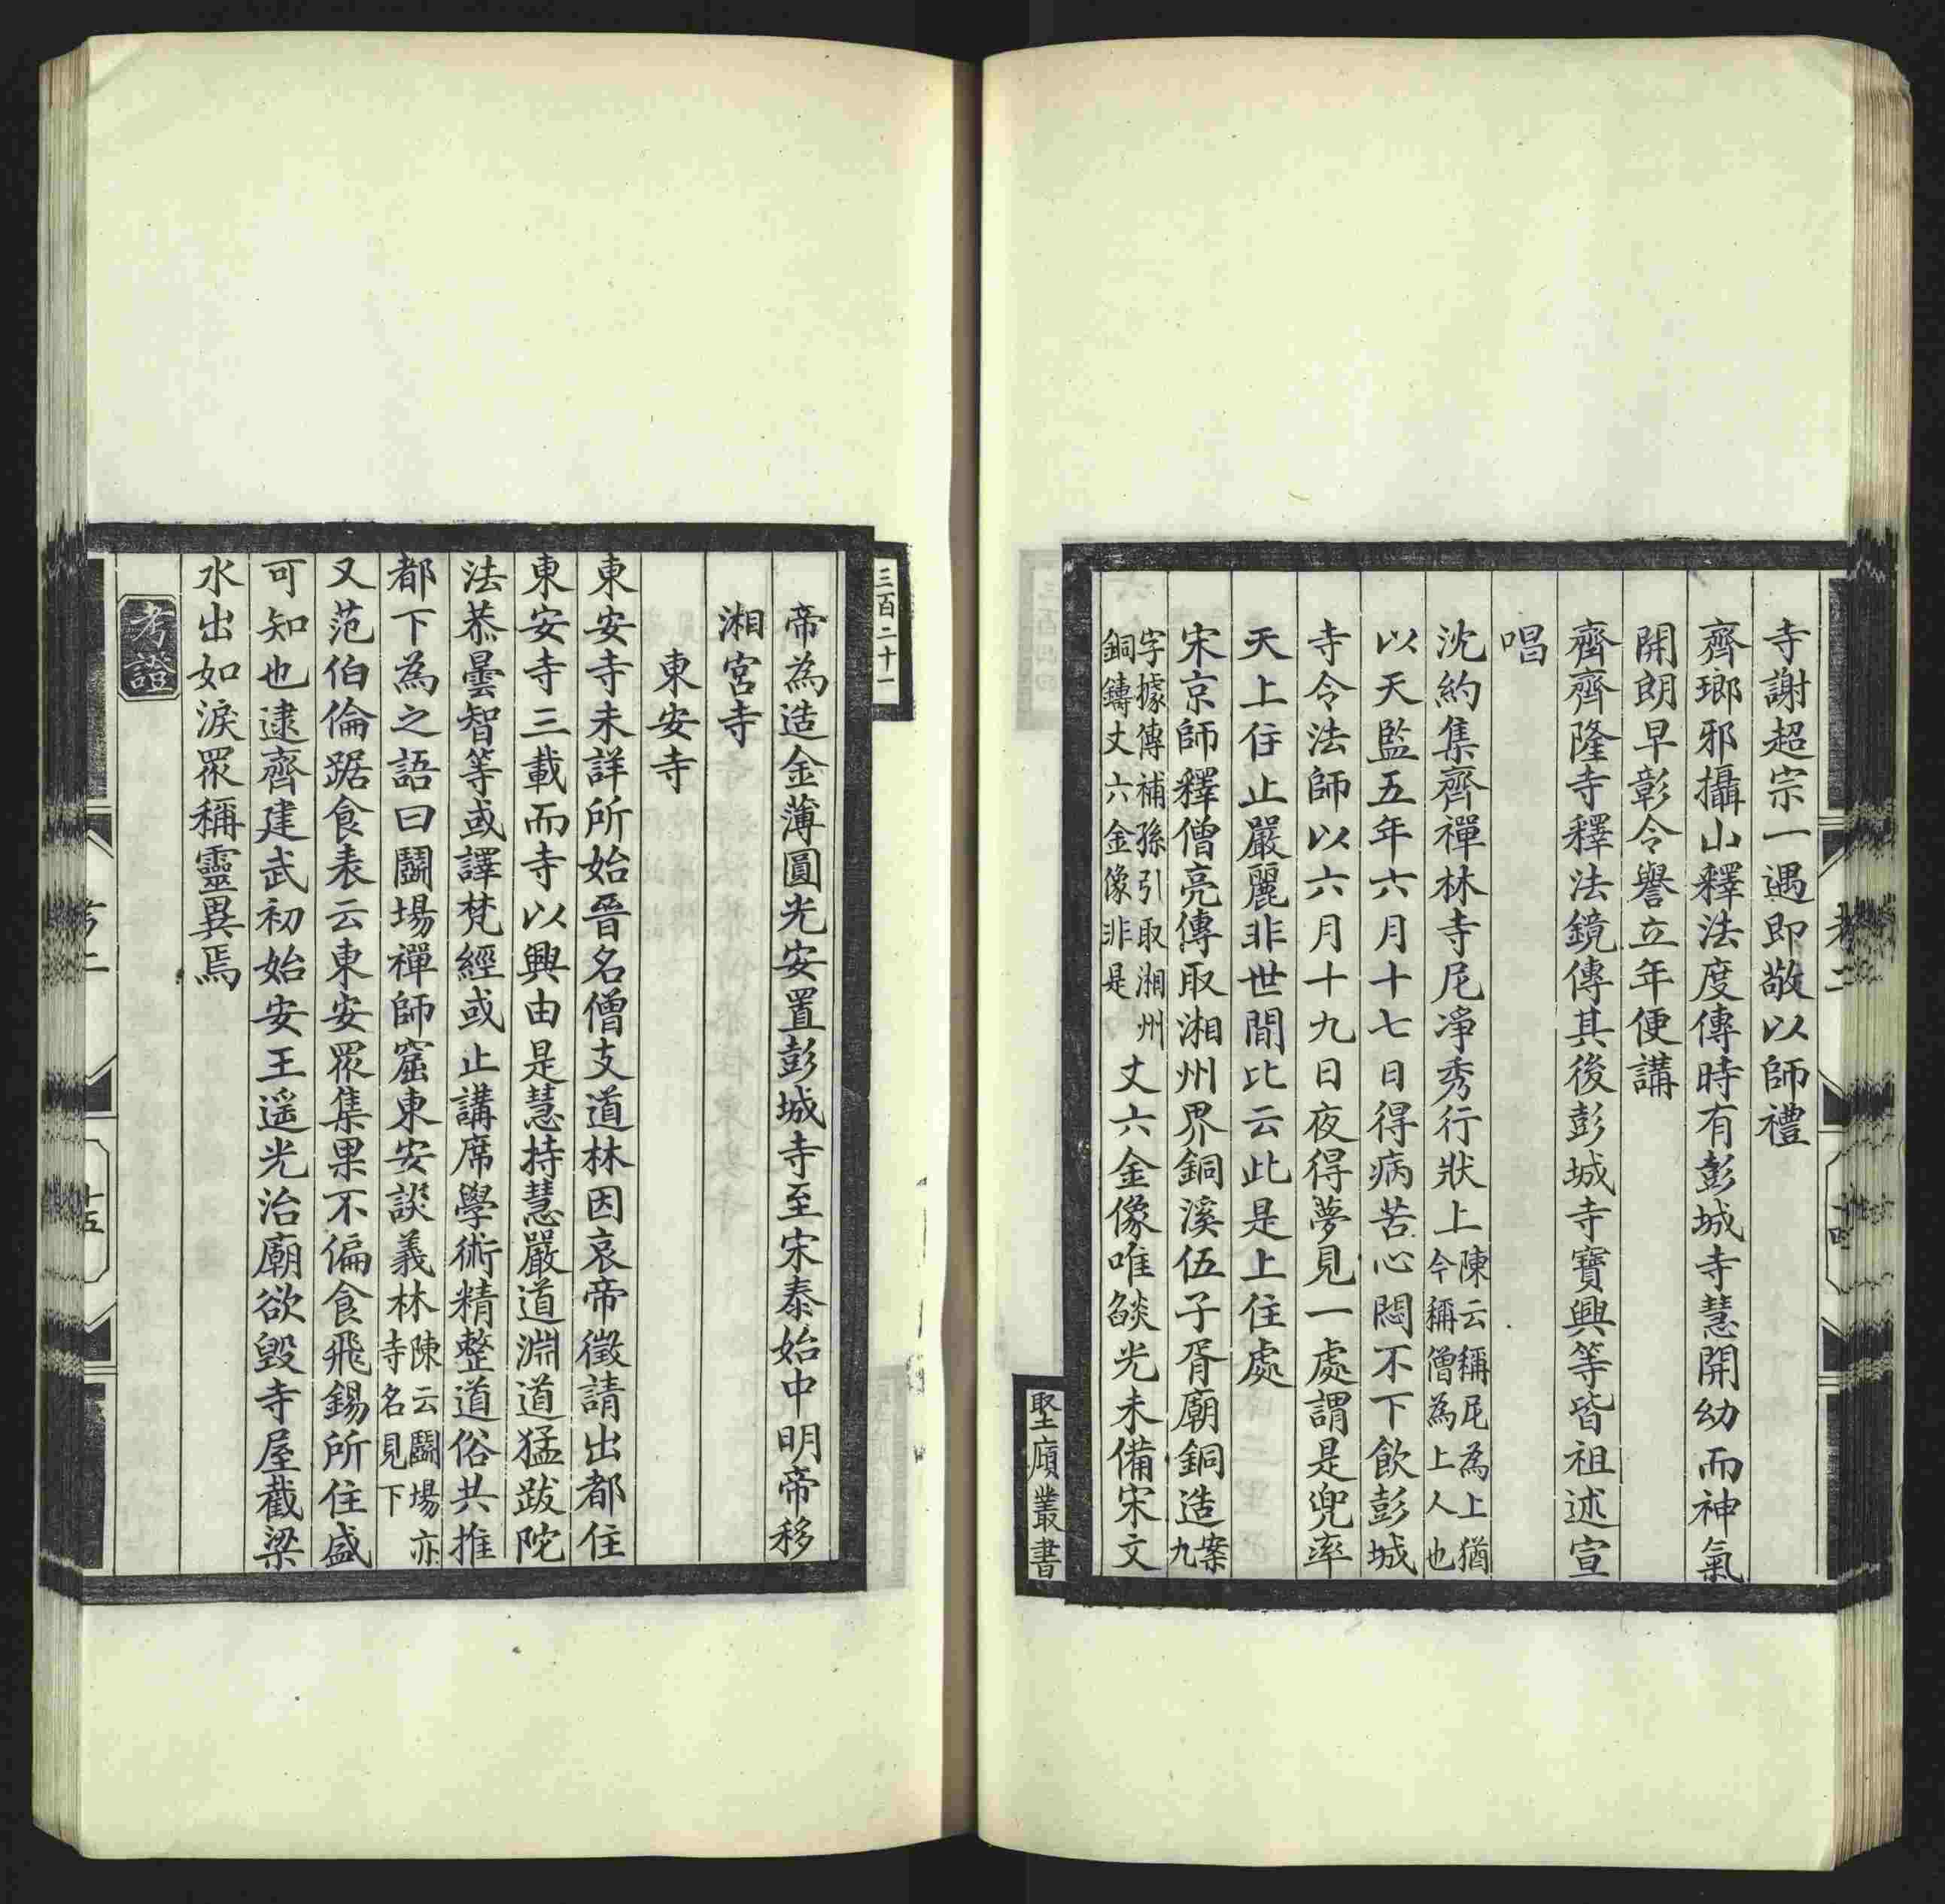 寺謝超宗一遇即敬以師禮
齊瑯邪攝山釋法度傳時有彭城寺慧開幼而神氣
開朗早彰令譽立年便講
齊齊隆寺釋法鏡傳其後彭城寺寶興等皆祖述宣
唱
沈約集齊禪林寺尼淨秀行狀上陳云稱尼為上猶
今稱僧為上人也
以天監五年六月十七日得病苦心悶不下飲彭城
寺令法師以六月十九日夜得夢見一處謂是兜率
天上住止嚴麗非世間比云此是上住處
宋京師釋僧亮傳取湘州界銅溪伍子胥廟銅造案
九
字據傳補孫引取湘州
銅鑄丈六金像非是
丈六金像唯燄光未備宋文
堅頋叢書
三百二十一
帝為造金薄圓光安置彭城寺至宋泰始中明帝移
湘宮寺
東安寺
東安寺未詳所始晉名僧支道林因哀帝徵請出都住
東安寺三載而寺以興由是慧持慧嚴道淵道猛跋陀
法恭曇智等或譯梵經或止講席學術精整道俗共推
都下為之語曰鬭場禪師窟東安談義林陳云鬭場亦
寺名見下
又范伯倫踞食表云東安眾集果不偏食飛錫所住盛
可知也逮齊建武初始安王遥光治廟欲毀寺屋截梁
水出如淚眾稱靈異焉
考證